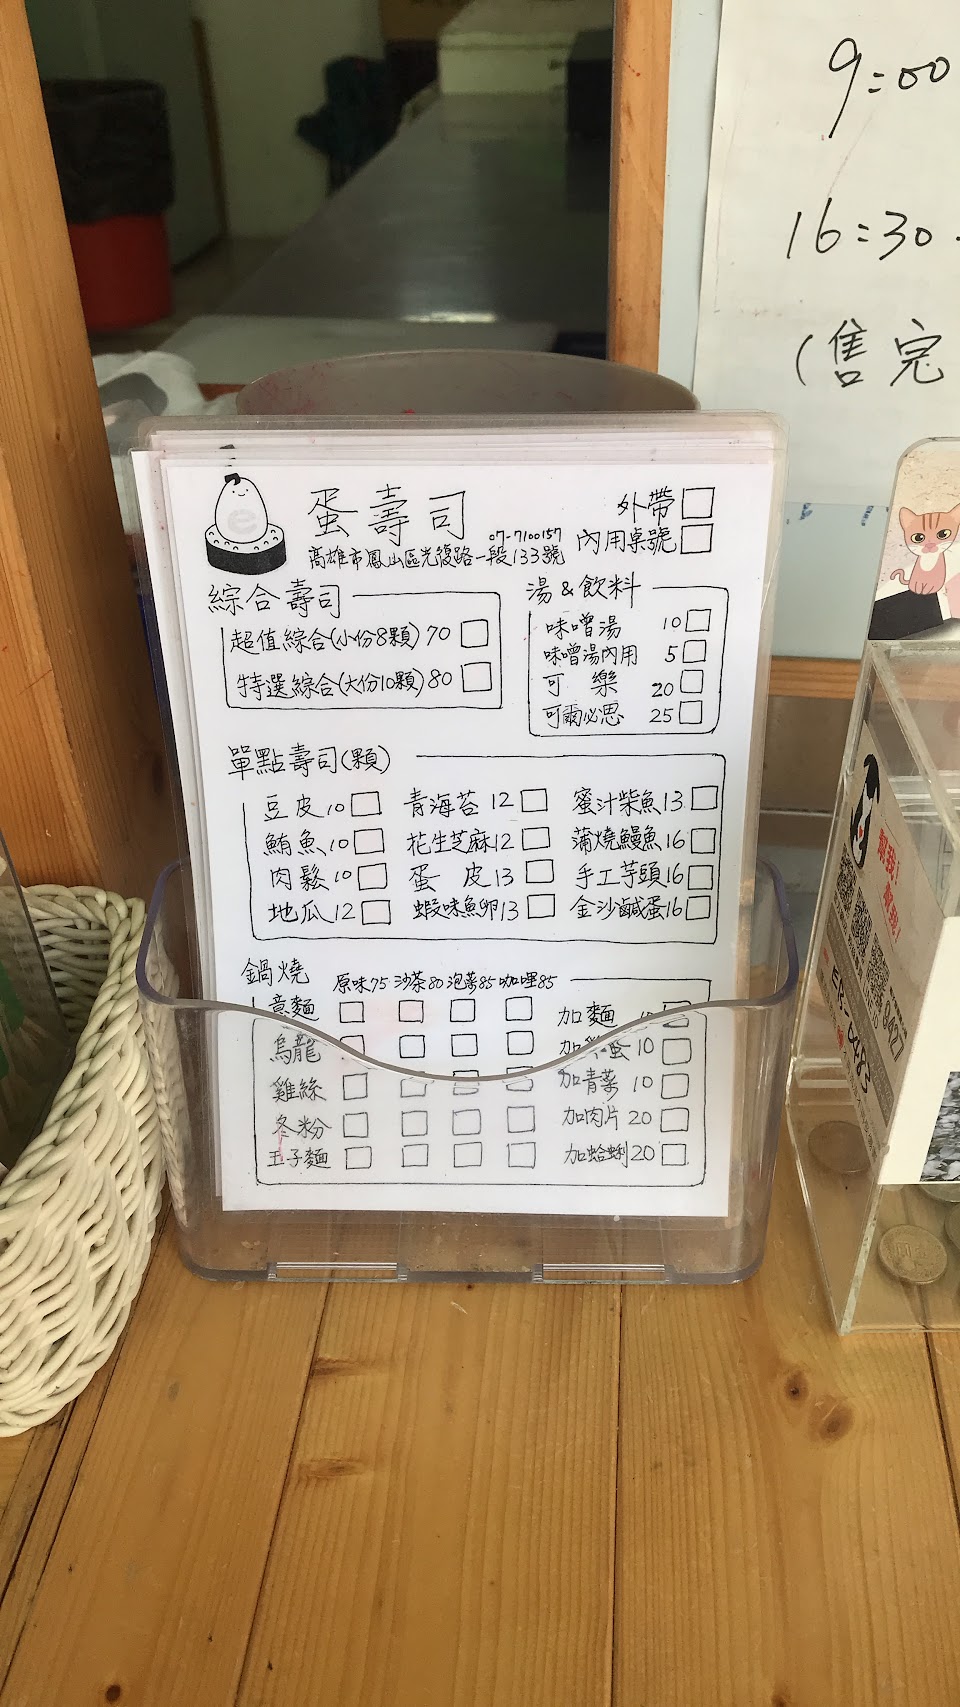 9:00
16:30
(售完
蛋壽司
07-7100157
高雄市鳳山區光復路一段133號
外帶
內用桌號
綜合壽司
超值綜合(小份8顆) 70
特選綜合(大份10顆) 80
湯&飲料
味噌湯 10
味噌湯內用 5
可樂 20
可爾必思 25
單點壽司(顆)
豆皮 10 青海苔 12 蜜汁柴魚 13
鮪魚 10 花生芝麻 12 蒲燒鰻魚 16
肉鬆 10 蛋皮 13 手工芋頭 16
地瓜 12 蝦味魚卵 13 金沙鹹蛋 16
鍋燒
原味75 沙茶80 泡菜85 咖哩85
意麵 加麵
烏龍 加雞蛋 10
雞絲 加青菜 10
冬粉 加肉片 20
王子麵 加蛤蜊 20